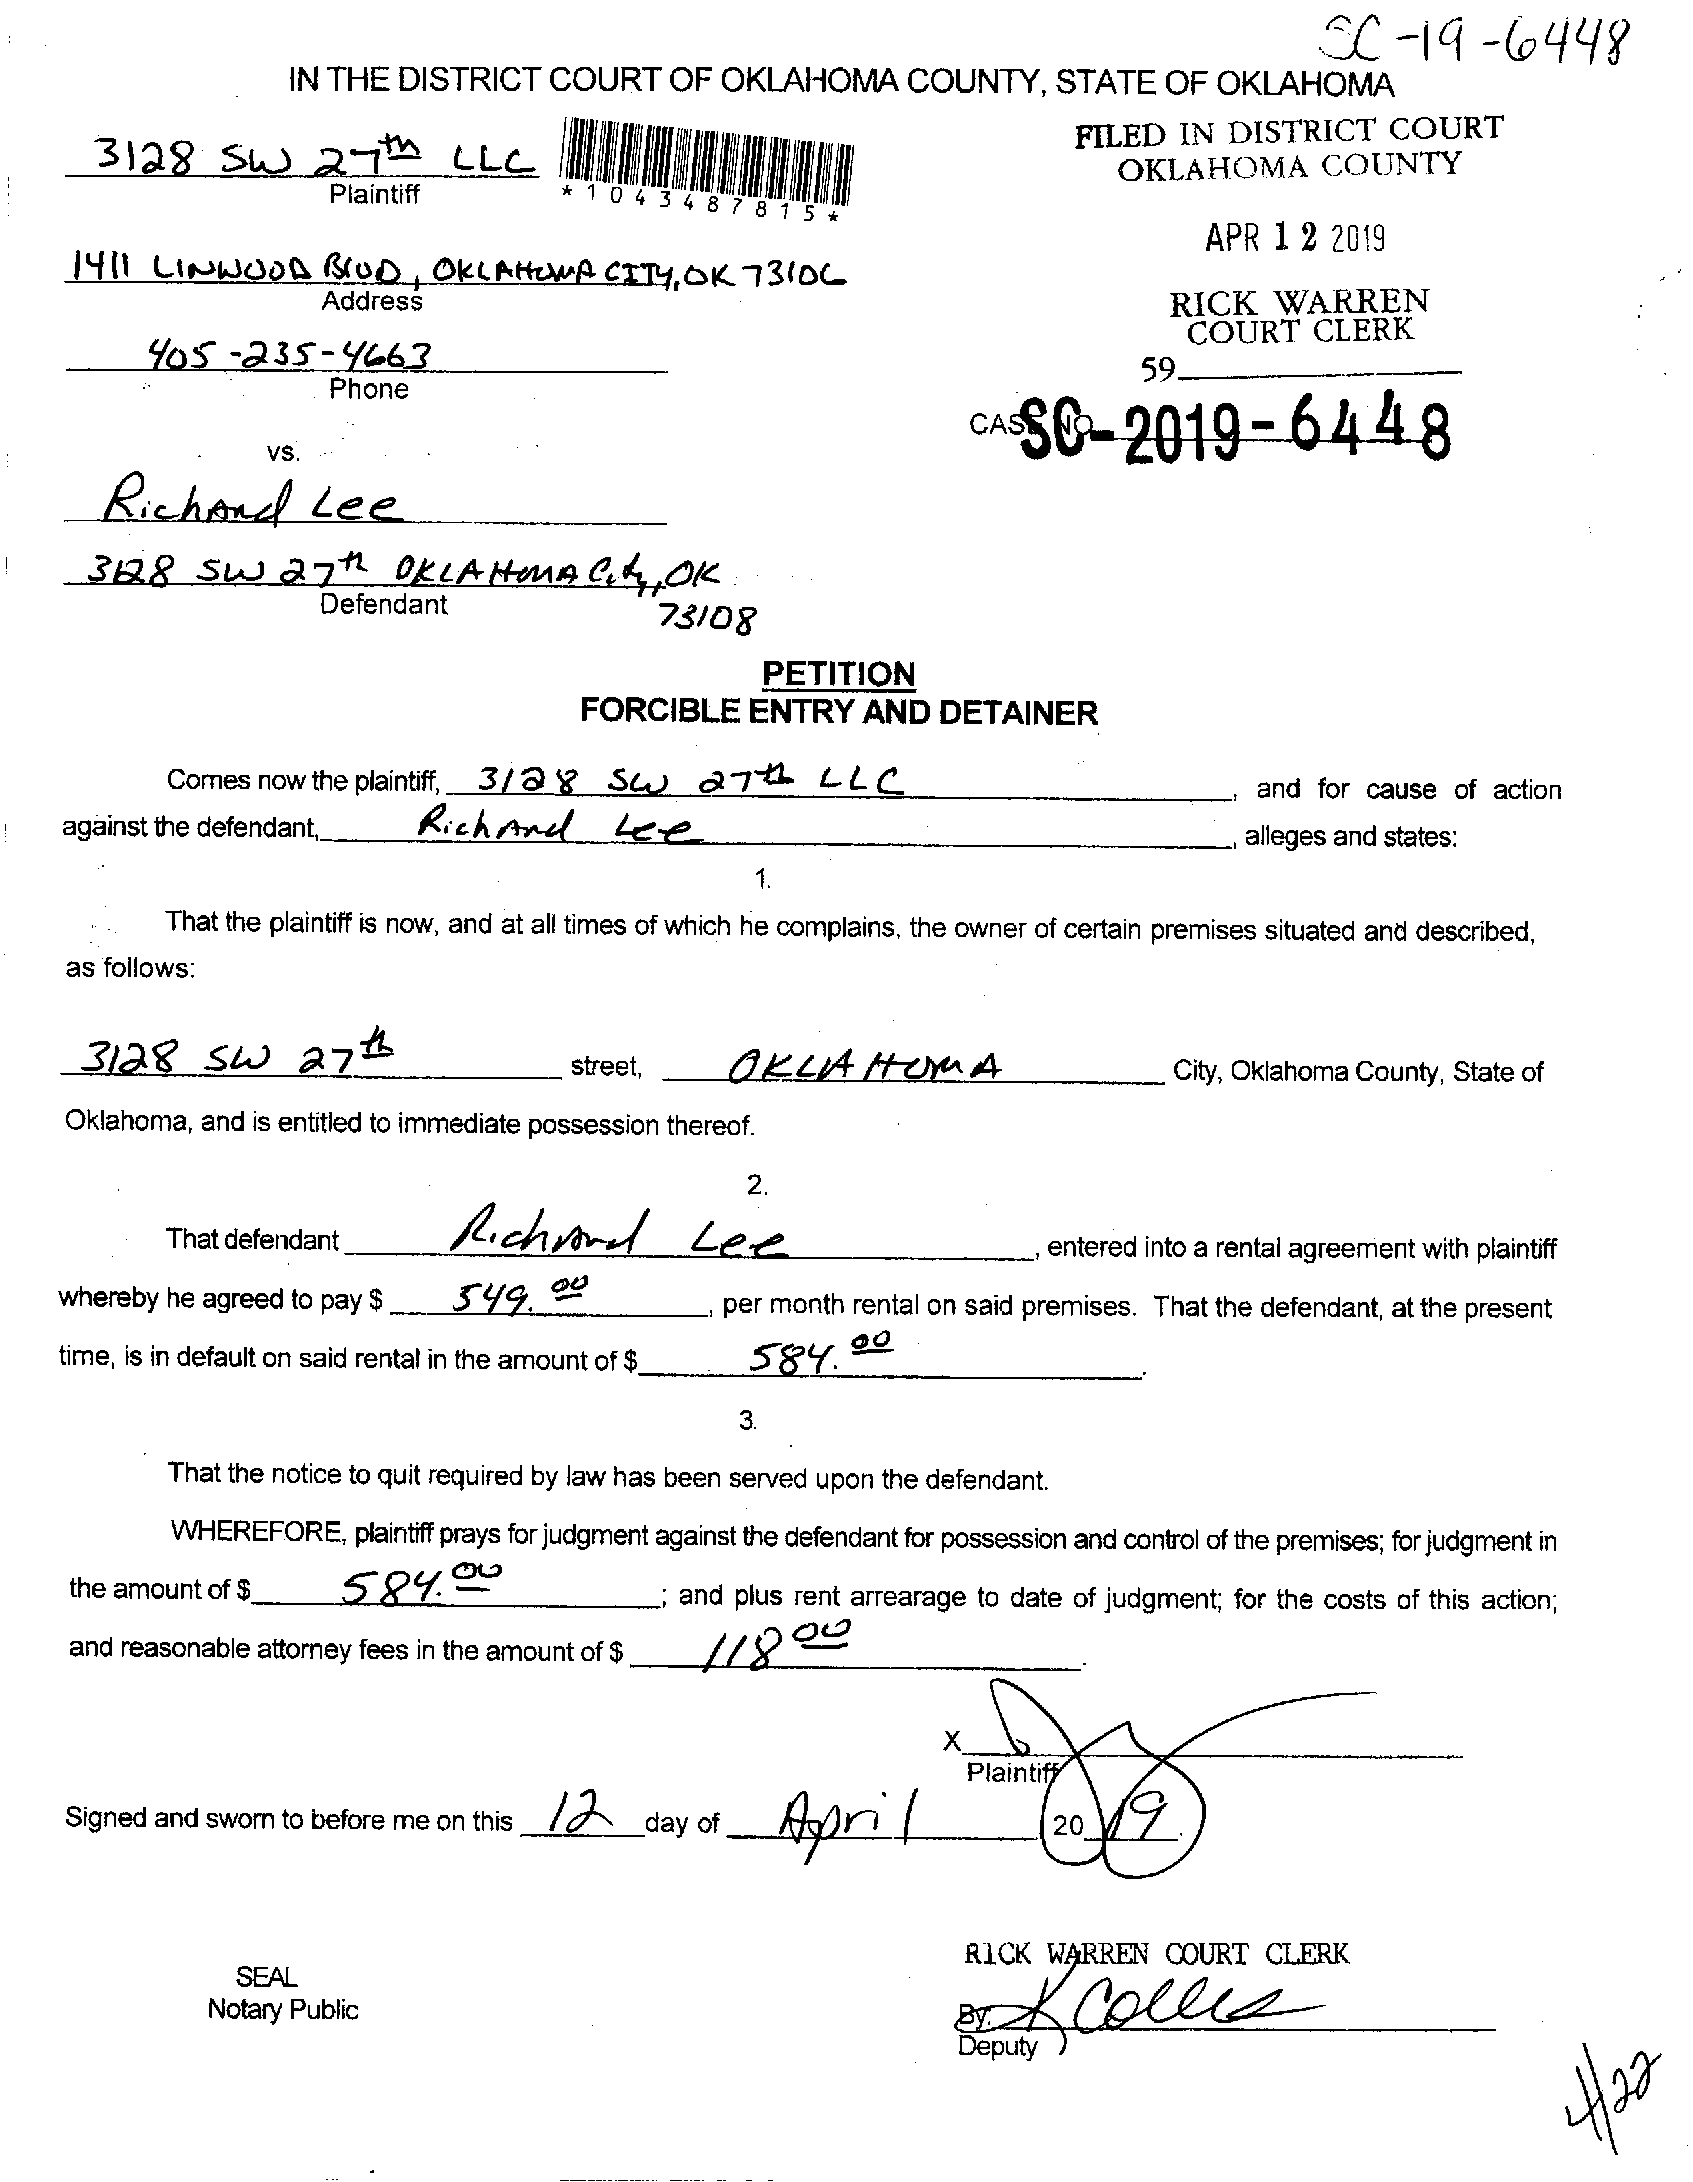 SC-19-6448
IN THE DISTRICT COURT OF OKLAHOMA COUNTY, STATE OF OKLAHOMA
3128 SW 27th LLC
Plaintiff
*1043487815*
FILED IN DISTRICT COURT
OKLAHOMA COUNTY
APR 12 2019
RICK WARREN
COURT CLERK
59
1411 LINWOOD BLVD, OKLAHOMA CITY, OK 73106
Address
405-235-4663
Phone
CASE NO. SC-2019-6448
vs.
Richard Lee
3128 SW 27th OKLAHOMA City, OK
73108
Defendant
PETITION
FORCIBLE ENTRY AND DETAINER
Comes now the plaintiff, 3128 SW 27th LLC, and for cause of action
against the defendant, Richard Lee, alleges and states:
1.
That the plaintiff is now, and at all times of which he complains, the owner of certain premises situated and described,
as follows:
3128 SW 27th street, OKLAHOMA City, Oklahoma County, State of
Oklahoma, and is entitled to immediate possession thereof.
2.
That defendant Richard Lee, entered into a rental agreement with plaintiff
whereby he agreed to pay $ 549.00, per month rental on said premises. That the defendant, at the present
time, is in default on said rental in the amount of $ 584.00.
3.
That the notice to quit required by law has been served upon the defendant.
WHEREFORE, plaintiff prays for judgment against the defendant for possession and control of the premises; for judgment in
the amount of $ 584.00; and plus rent arrearage to date of judgment; for the costs of this action;
and reasonable attorney fees in the amount of $ 118 00.
X
Plaintiff
Signed and sworn to before me on this 12 day of April 2019.
RICK WARREN COURT CLERK
SEAL
Notary Public
By: K Colles
Deputy
4/22